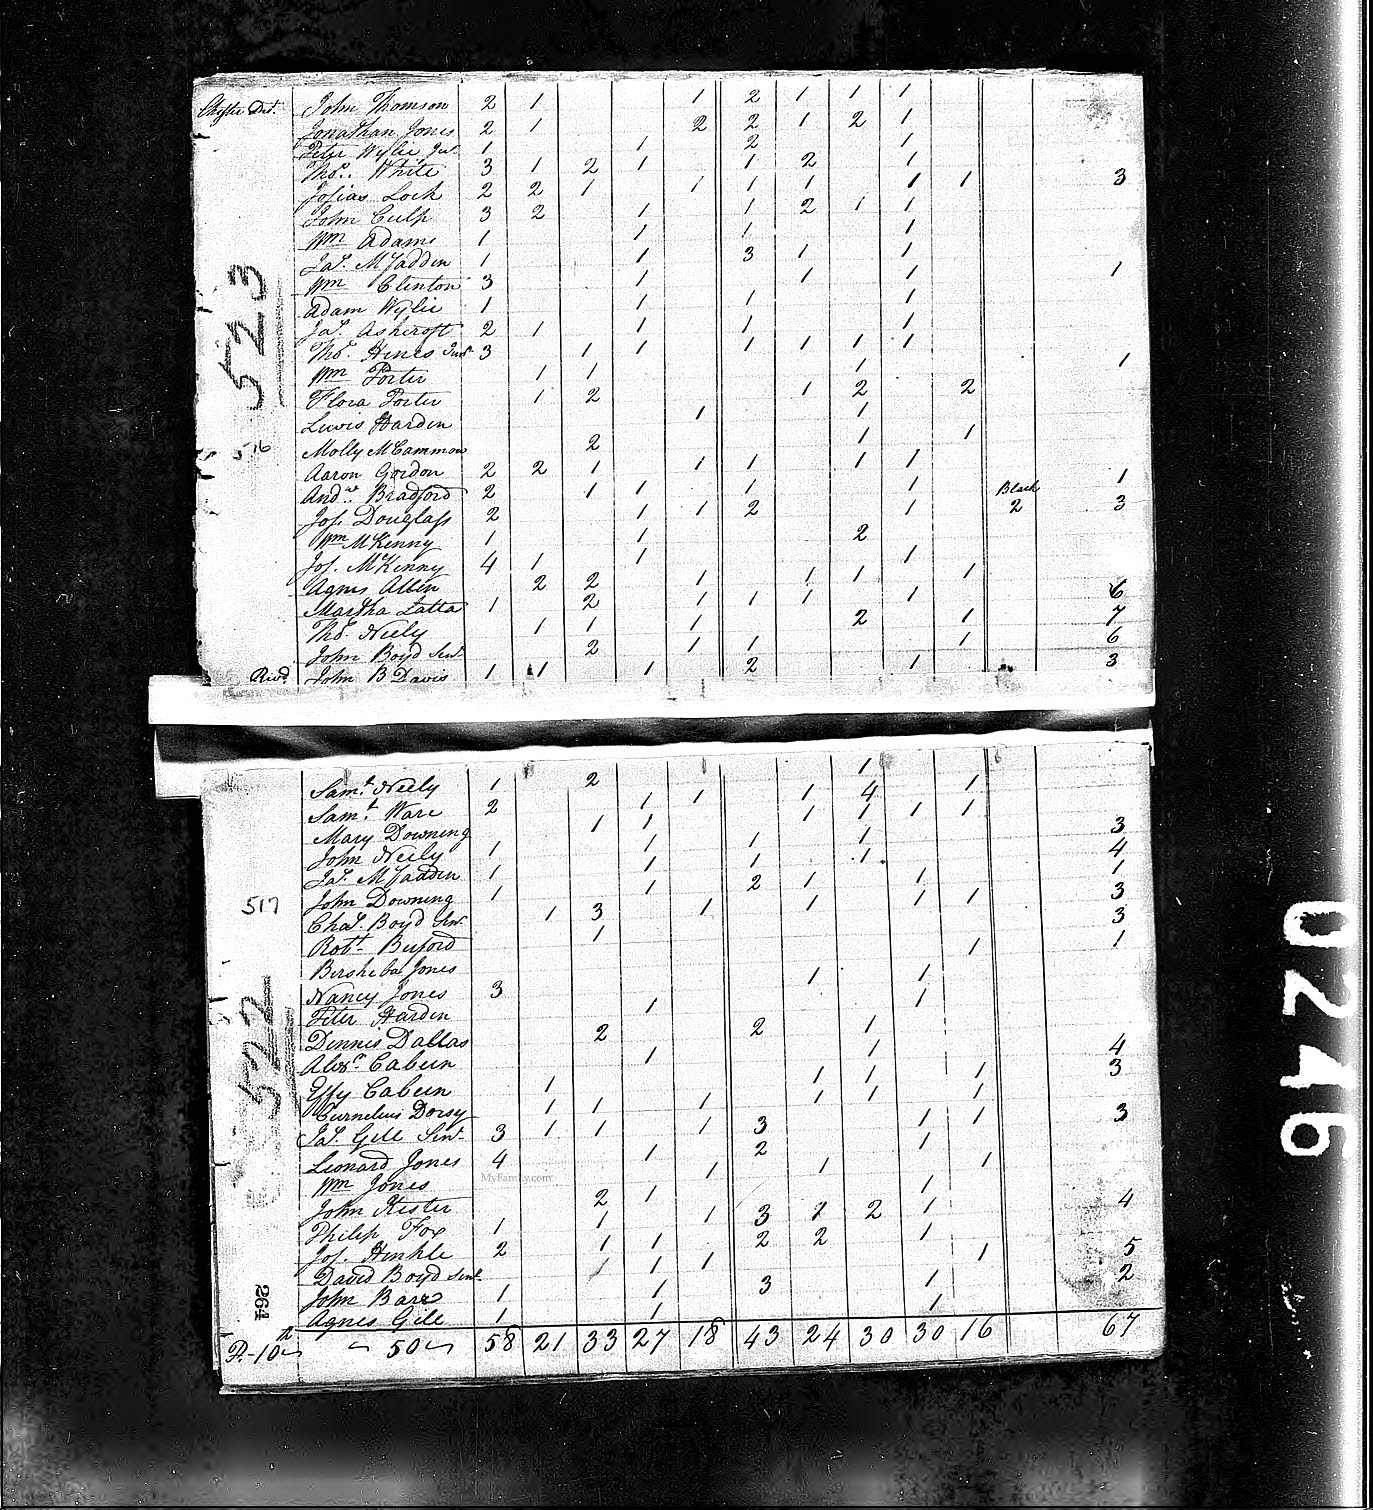 Chester Dist. John Thomson 2 1 1 2 1 1 1
Jonathan Jones 2 1 2 2 1 2 1
Peter Wylie Jur. 1 1 2 1
Thos. White 3 1 2 1 1 2 1
Josias Lock 2 2 1 1 1 1 1 1 3
John Culp 3 2 1 1 2 1 1
Wm Adams 1 1 1 1
Jas. McFadden 1 1 3 1 1
Wm Clinton 3 1 1 1 1
Adam Wylie 1 1 1 1
Jas. Ashcroft 2 1 1 1 1
Thos. Hines Junr 3 1 1 1 1 1 1
Wm Porter 1 1 1 1
Flora Porter 1 2 1 2 2
Lewis Harden 1 1
Molly McCammon 2 1 1
Aaron Gordon 2 2 1 1 1 1 1
Andw. Bradford 2 1 1 1 1 Black 1
Jos. Douglass 2 1 1 2 1 2 3
Wm McKenny 1 1 2
Jos. McKenny 4 1 1 1
Agnes Allen 2 2 1 1 1 1
Martha Latta 1 2 1 1 1 1 6
Thos. Neely 1 1 1 2 1 7
John Boyd Senr. 2 1 1 1 6
John B Davis 1 1 1 2 1 3
523
516
Saml. Neely 1 2 1 1
Saml. Ware 2 1 1 1 4
Mary Downing 1 1 1 1 1 1 3
John Neely 1 1 1 1 4
Jas. McFadden 1 1 1 1 1
John Downing 1 1 2 1 1 3
Chas. Boyd Senr. 1 3 1 1 1 1 3
Robt. Buford 1 1
Bersheba Jones 1
Nancy Jones 3 1 1
Peter Harden 1 1
Dennis Dallas 2 2 1
Alexr. Cabeen 1 1 4
Effy Cabeen 1 1 1 1 3
Curnelius Dorsy 1 1 1 1 1 1
Jas. Gill Senr. 3 1 1 1 3 1 1 3
Leonard Jones 4 1 2 1
Wm Jones 1 1 1
John Kester 2 1 1
Philip Fox 1 1 1 3 2 1 4
Jos. Hinkle 2 1 1 2 2 1
David Boyd Senr. 1 1 1 1 5
John Barr 1 1 3 1 2
Agnes Gill 1 1 1
50 58 21 33 27 18 43 24 30 30 16 67
517
522
264
MyFamily.com
0246